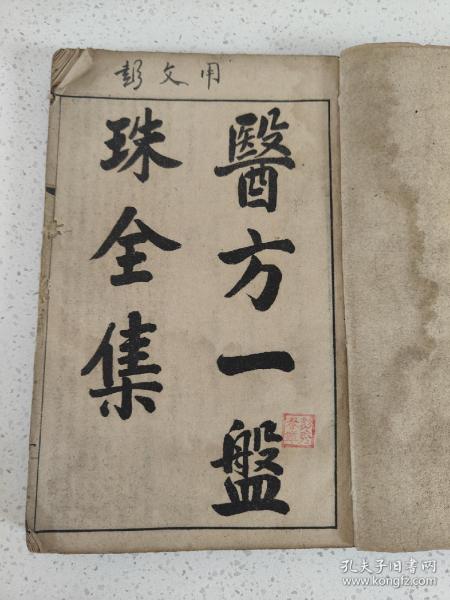 彭文用
醫方一盤
珠全集
孔夫子旧书网
www.kongfz.com